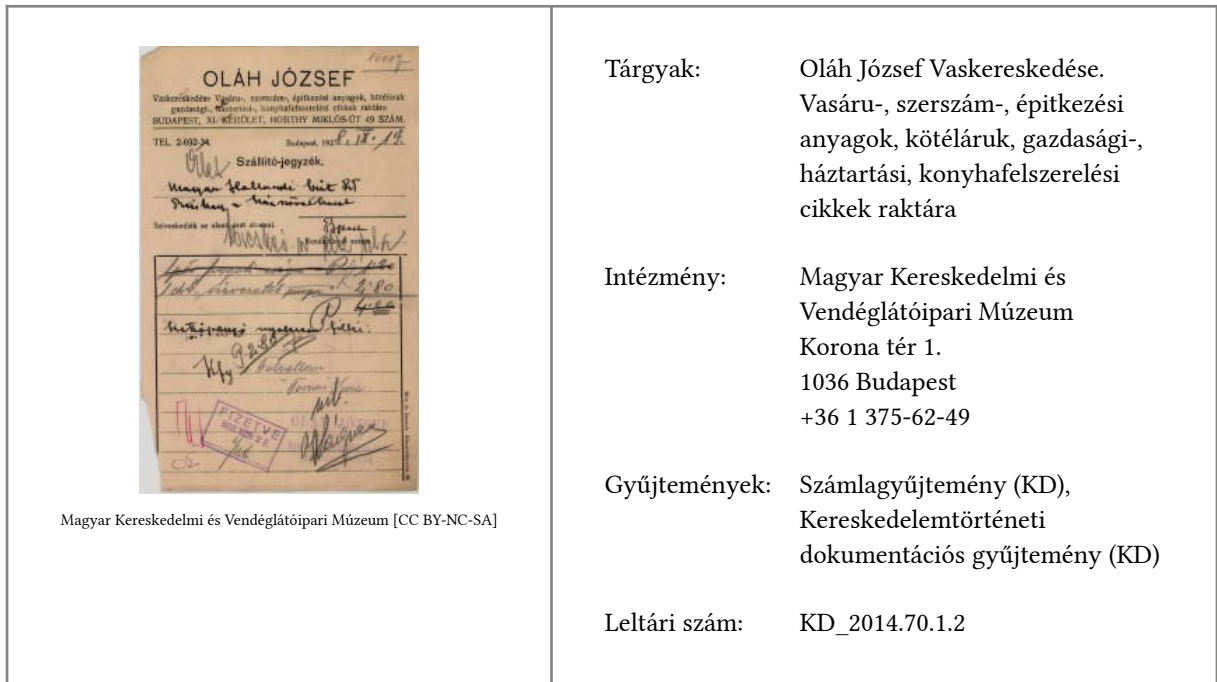 OLÁH JÓZSEF
Vaskereskedése Vasáru-, szerszám-, épitkezési anyagok, kötéláruk
gazdasági-, háztartási-, konyhafelszerelési cikkek raktára
BUDAPEST, XI. KERÜLET, HORTHY MIKLÓS-ÚT 49 SZÁM.
TEL. 2-692-34. Budapest, 193
Szállitó-jegyzék.
Magyar Hollandi
Sziveskedjék az alant
1 drb.
2.80
fillér.
P 2.80
FIZETVE
OLÁH JÓZSEF
Magyar Kereskedelmi és Vendéglátóipari Múzeum [CC BY-NC-SA]
Tárgyak: Oláh József Vaskereskedése.
Vasáru-, szerszám-, épitkezési
anyagok, kötéláruk, gazdasági-,
háztartási, konyhafelszerelési
cikkek raktára
Intézmény: Magyar Kereskedelmi és
Vendéglátóipari Múzeum
Korona tér 1.
1036 Budapest
+36 1 375-62-49
Gyűjtemények: Számlagyűjtemény (KD),
Kereskedelemtörténeti
dokumentációs gyűjtemény (KD)
Leltári szám: KD_2014.70.1.2